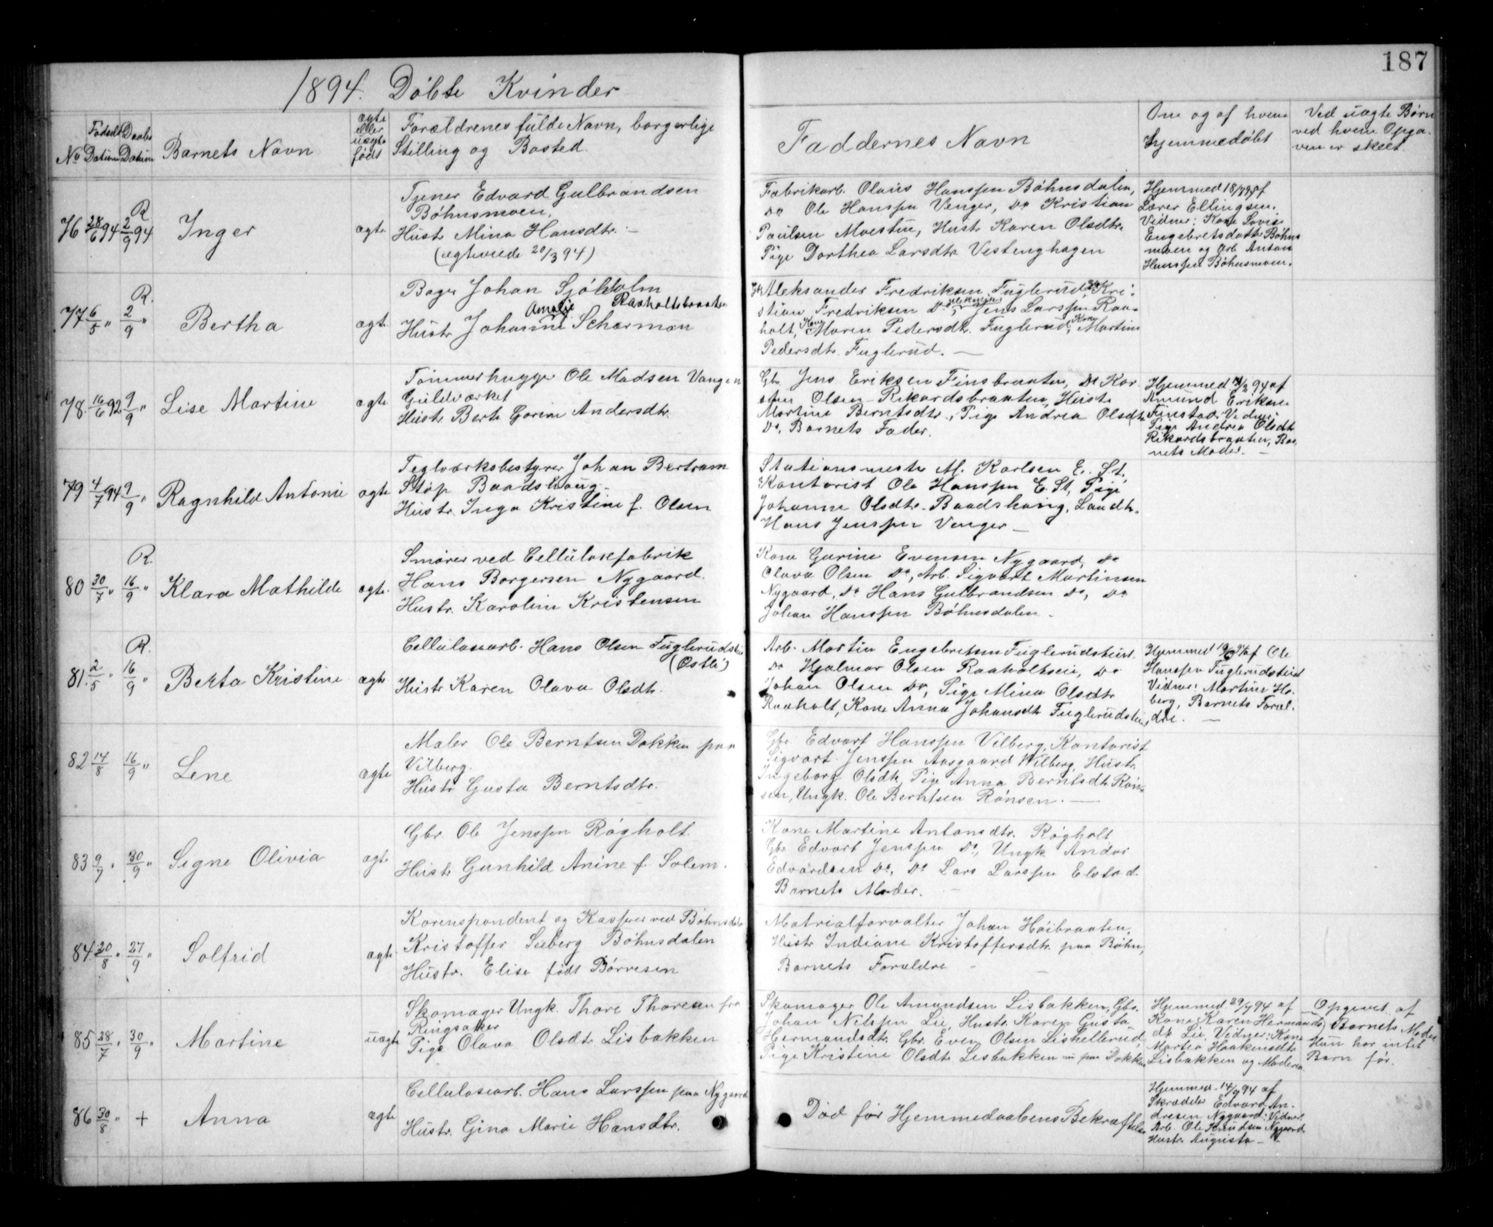 187
1894. Döbte Kvinder
No Födsels Datum Daabs Datum Barnets Navn ægte eller uægte födt Forældrenes fulde Navn, borgerlige Stilling og Bosted Faddernes Navn Om og af hvem hjemmedöbt Ved uægte Börn ved hvem Opgaven er skeet
76 28/6 94 R. 2/9 94 Inger ægte
Tjener Edvard Gulbrandsen
Böhnsmoen,
Hustr. Mina Hansdtr. –
(ægteviede 20/3 94)
Fabrikarb. Olaus Hanssen Böhnsdalen,
Do Ole Hanssen Venger, Do Kristian
Paulsen Moestun, Hustr. Karen Olsdtr.
Pige Dorthea Larsdtr. Vestenghagen
Lærer Ellingsen.
Engebretsdatter Böhns-
moen og Arb. Anton
Hanssen Böhnsmoen.
77 6/5 " R. 2/9 " Bertha ægte
Bager Johan Sjöholm
Raaholtsbraaten
Hustr. Johanne Amalie Scharman
Aleksander Fredriksen Fuglerud, Kri-
stian Fredriksen Do, Jens Larssen Raa-
holt, Kone Maren Pedersdtr. Fuglerud, Kone Martine
Pedersdtr. Fuglerud. —
78. 16/6 92 9/9 " Lise Martine ægte
Tömmerhugger Ole Madsen Vangen
Guldværket
Hustr. Berte Gorine Andersdtr.
Gbr. Jens Eriksen Finsbraaten, Do Kar-
sten Olsen Rikardsbraaten, Hustr.
Martine Berntsdtr., Pige Andrea Olsdtr.
Do, Barnets Fader.
Amund Eriksen
Finstad. Vidner:
Pige Andrea Olsdtr.
Rikardsbraaten, Bar-
nets Moder. —
79 4/7 94 9/9 " Ragnhild Antonie ægte
Teglværksbestyrer Johan Bertram
Støp Baadshaug.
Hustr. Inga Kristine f. Olsen
Stationsmester M. Karlsen E. St.,
Kontorist Ole Hanssen E. St., Pige
Johanne Olsdtr. Baadshaug, Landh.
Hans Jenssen Venger —
80 30/7 " R. 16/9 " Klara Mathilde ægte.
Smörer ved Cellulosefabrik
Hans Borgersen Nygaard.
Hustr. Karoline Kristensen
Kone Gorine Evensen Nygaard, Do
Olava Olsen Do, Arb. Sigvart Martinsen
Nygaard, Do Hans Gulbrandsen Do, Do
Johan Hanssen Böhnsdalen.
81. 2/5 " R. 16/9 " Berta Kristine ægte
Cellulosearb. Hans Olsen Fuglerudstei
(Östli)
Hustr. Karen Olava Olsdtr.
Arb. Martin Engebretsen Fuglerudsteiet
Do Hjalmar Olsen Raaholtseie, Do
Johan Olsen Do, Pige Mina Olsdtr.
Raaholt, Kone Anna Johansdtr. Fuglerudstei
Hanssen Fuglerudsteiet
Vidner: Martin Ho-
berg, Barnets Foræl-
dre. —
82 14/8 16/9 " Lene ægte
Maler Ole Berntsen Dokken paa
Vilberg.
Hustr. Gusta Berntsdtr.
Gbr. Edvart Hanssen Vilberg, Kontorist
Sigvart Jenssen Aasgaard Wilberg, Hustr.
Ingeborg Olsdtr., Pige Anna Berntsdtr. Rön-
sen, Ungk. Ole Berntsen Rönsen. —
83 9/7 " 30/9 " Signe Olivia ægte
Gbr. Ole Jenssen Rögholt
Hustr. Gunhild Anine f. Solem.
Kone Martine Antonsdtr. Rögholt
Gbr. Edvart Jenssen Do, Ungk. Andor
Edvardsen Do, Do Lars Larssen Elstad
Barnets Moder. –
84. 20/8 " 27/9 " Solfrid ægte.
Korrespondent og Kasserer ved Böhnsdalen
Kristoffer Seeberg Böhnsdalen
Hustr. Elise födt Börresen
Matrialforvalter Johan Höibraaten,
Hustr. Indiane Kristoffersdtr. paa Böhn,
Barnets Forældre –
85 28/7 " 30/9 " Martine uægte
Skomager Ungk. Thore Thoresen fra
Ringsaker
Pige Olava Olsdtr. Lisbakken
Skomager Ole Amundsen Lisbakken, Gbr.
Johan Nilssen Lie, Hustr. Karen Gusta
Hermandsdtr., Gbr. Even Olsen Liskellerud,
Pige Kristine Olsdtr. Lisbakken paa Dokken
Hjemmed. 29/7 94 af
Kone Karen Hermands-
dtr. Lie Vidner: Kone
Martea Haakensdtr.
Lisbakken og Moderen
Opgivet af
Barnets Moder
Hun har intet
Barn för.
86 30/8 " + Anna ægte
Cellulosearb. Hans Larssen paa Nygaard
Hustr. Gina Marie Hansdtr.
Död för Hjemmedaabens Bekræftelse
Hjemmed. 14/9 94 af
Skrædder Edvard An-
dresen Nygaard; Vidner
Arb. Ole Knudsen Nygaard
Hustr. Augusta –